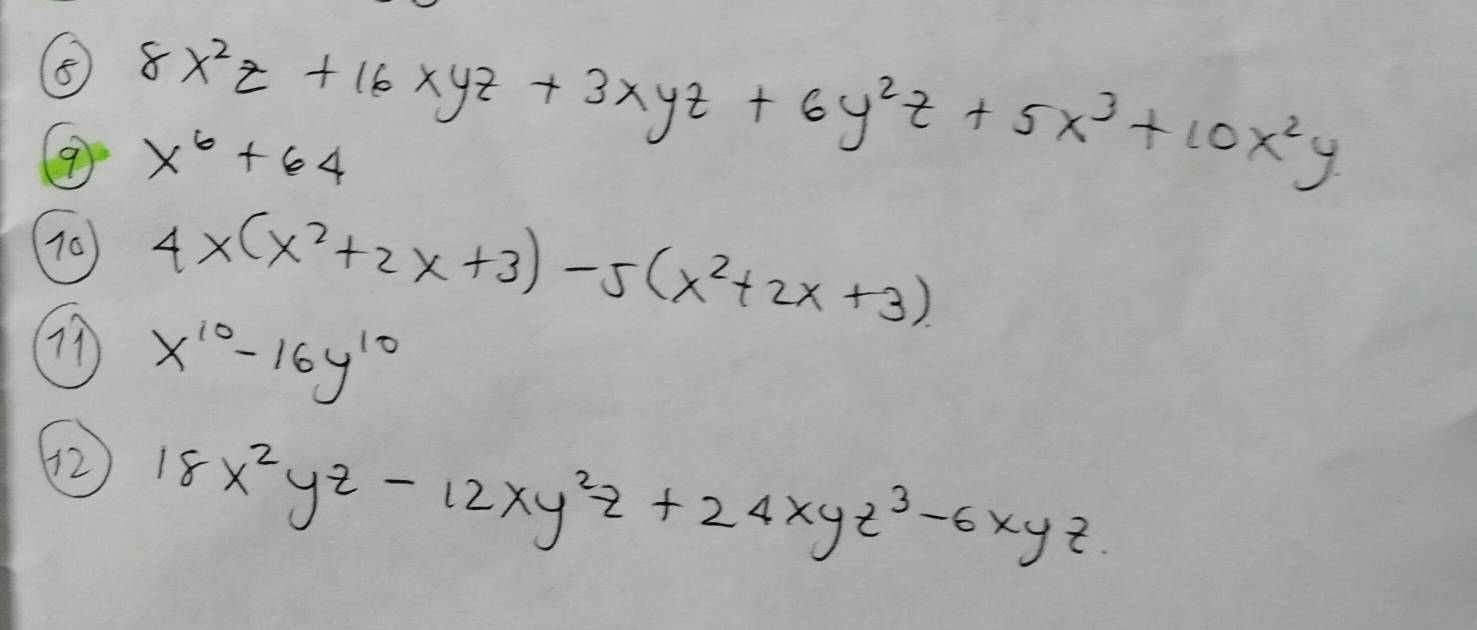 ⑧ 8x²z + 16xyz + 3xyz + 6y²z + 5x³ + 10x²y
⑨ x⁶ + 64
⑩ 4x(x²+2x+3) - 5(x²+2x+3).
⑪ x¹⁰ - 16y¹⁰
⑫ 18x²yz - 12xy²z + 24xyz³ - 6xyz.